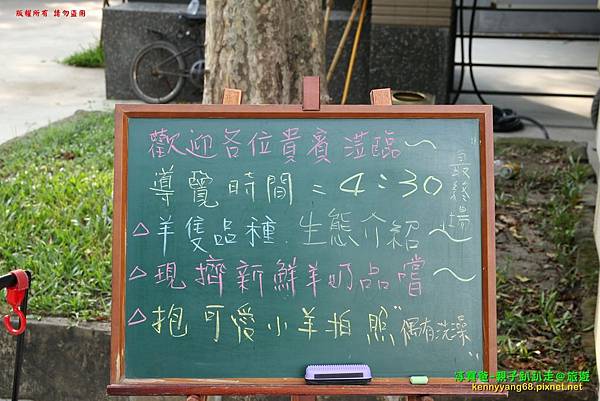 版權所有 請勿盜用
歡迎各位貴賓蒞臨~
導覽時間=4:30
最終場
△羊隻品種.生態介紹~
△現擠新鮮羊奶品嚐~
△抱可愛小羊拍照"偶有洗澡"
濘寶爸-親子趴趴走@旅遊
kennyyang68.pixnet.net